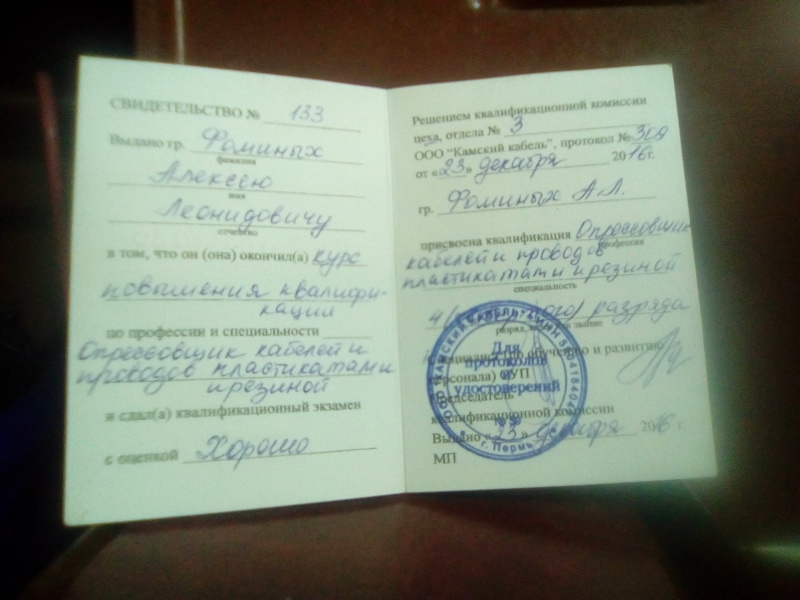 СВИДЕТЕЛЬСТВО № 133
Выдано гр. Фоминых
фамилия
Алексею
имя
Леонидовичу
отчество
в том, что он (она) окончил(а) курс
повышения квалифи-
кации
по профессии и специальности
Опрессовщик кабелей и
проводов пластикатами
и резиной
и сдал(а) квалификационный экзамен
с оценкой Хорошо
Решением квалификационной комиссии
цеха, отдела № 3
ООО "Камский кабель", протокол № 309
от «23» декабря 2016 г.
гр. Фоминых А.Л.
присвоена квалификация Опрессовщик
профессия
кабелей и проводов
пластикатами и резиной
специальность
4 разряда
разряд, звание
Специалист по обучению и развитию
персонала ФУП
Председатель
квалификационной комиссии
Выдано «23» декабря 2016 г.
МП
Для
протоколов
и
удостоверений
г. Пермь